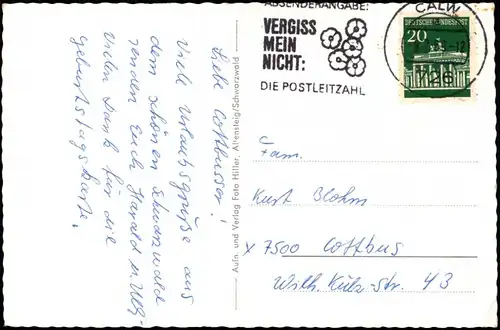 Liebe Cottbusser!
Viele Urlaubsgrüße aus
dem schönen Schwarzwald
senden Euch Harald u. Ulli
Vielen Dank für die
Geburtstagskarte.
Aufn. und Verlag Foto Hiller, Altensteig/Schwarzwald
ABSENDERANGABE:
VERGISS
MEIN
NICHT:
DIE POSTLEITZAHL
CALW
726
DEUTSCHE BUNDESPOST
20
Fam.
Kurt Blohm
x 7500 Cottbus
Wilh. Külz-Str. 43